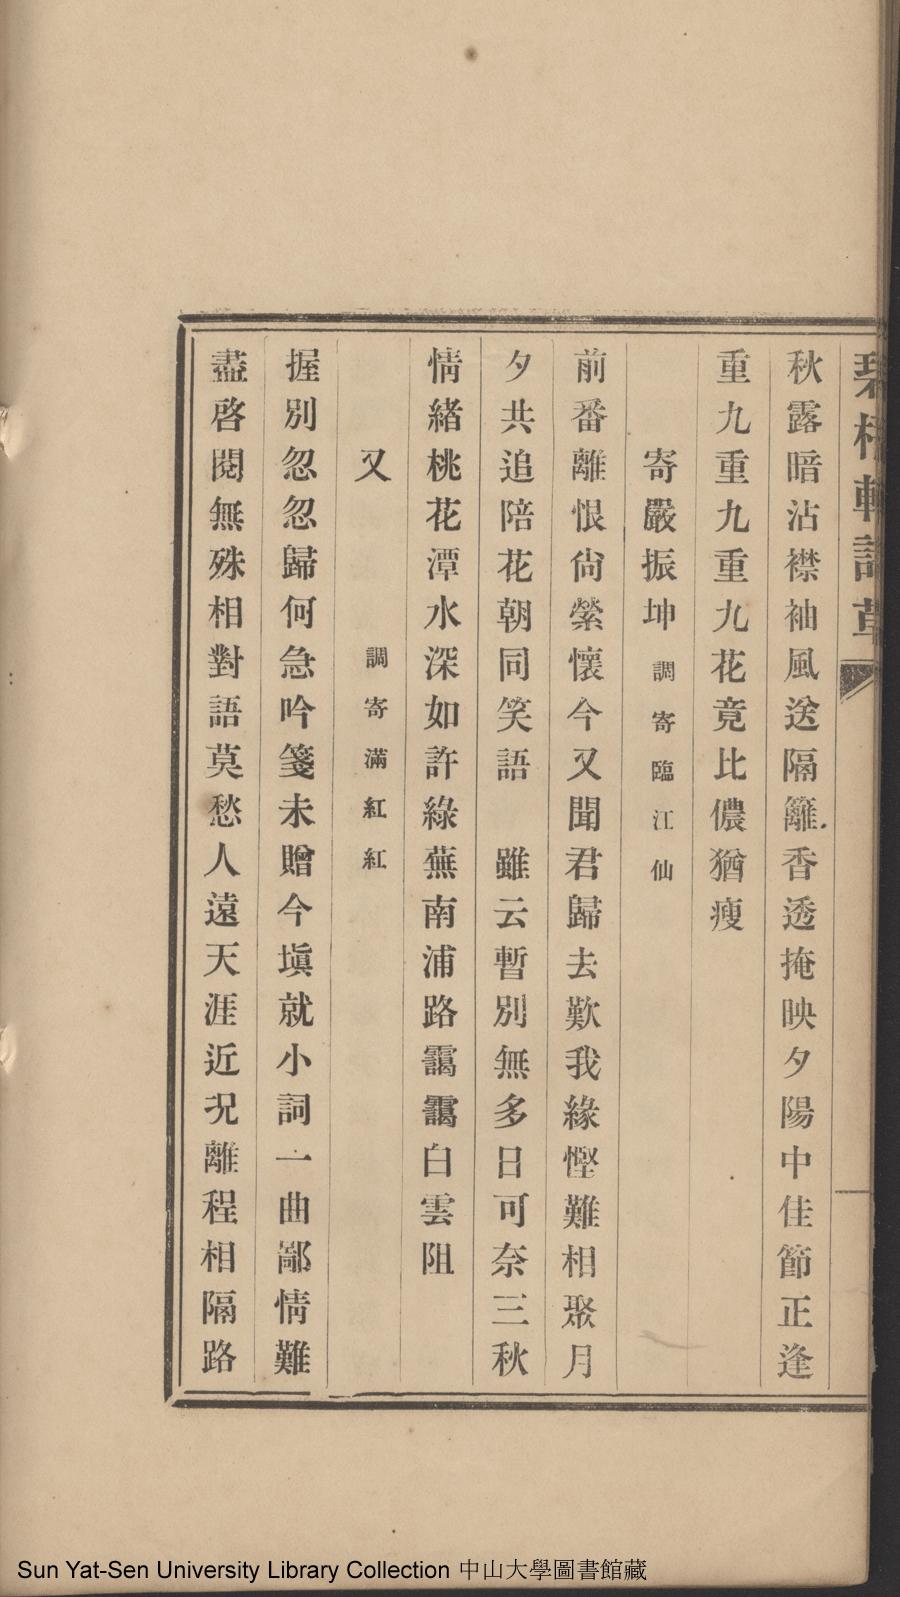 秋露暗沾襟袖風送隔籬香透掩映夕陽中佳節正逢
重九重九重九花竟比儂猶瘦
寄嚴振坤 調寄臨江仙
前番離恨尙縈懷今又聞君歸去歎我緣慳難相聚月
夕共追陪花朝同笑語　雖云暫別無多日可奈三秋
情緒桃花潭水深如許綠蕪南浦路靄靄白雲阻
又 調寄滿紅紅
握別忽忽歸何急吟箋未贈今塡就小詞一曲鄙情難
盡啓閱無殊相對語莫愁人遠天涯近況離程相隔路
Sun Yat-Sen University Library Collection 中山大學圖書館藏